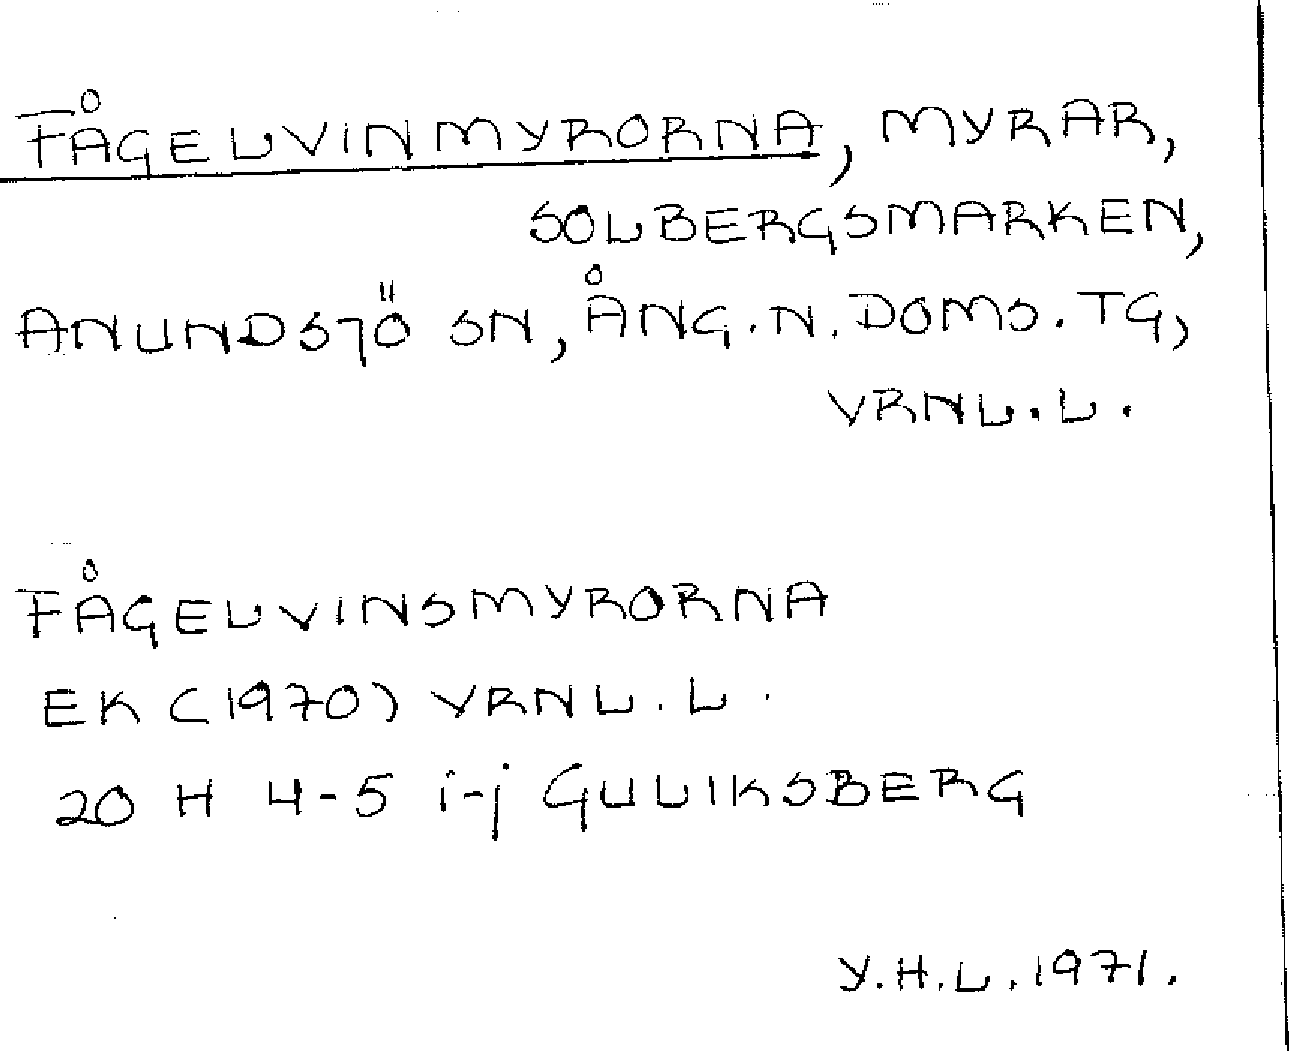 FÅGELVINMYRORNA, MYRAR,
SOLBERGSMARKEN,
ANUNDSJÖ SN, ÅNG.N.DOMS.TG,
VRNL.L.
FÅGELVINSMYRORNA
EK (1970) VRNL.L.
20 H 4-5 i-j GULIKSBERG
Y.H.L.1971.